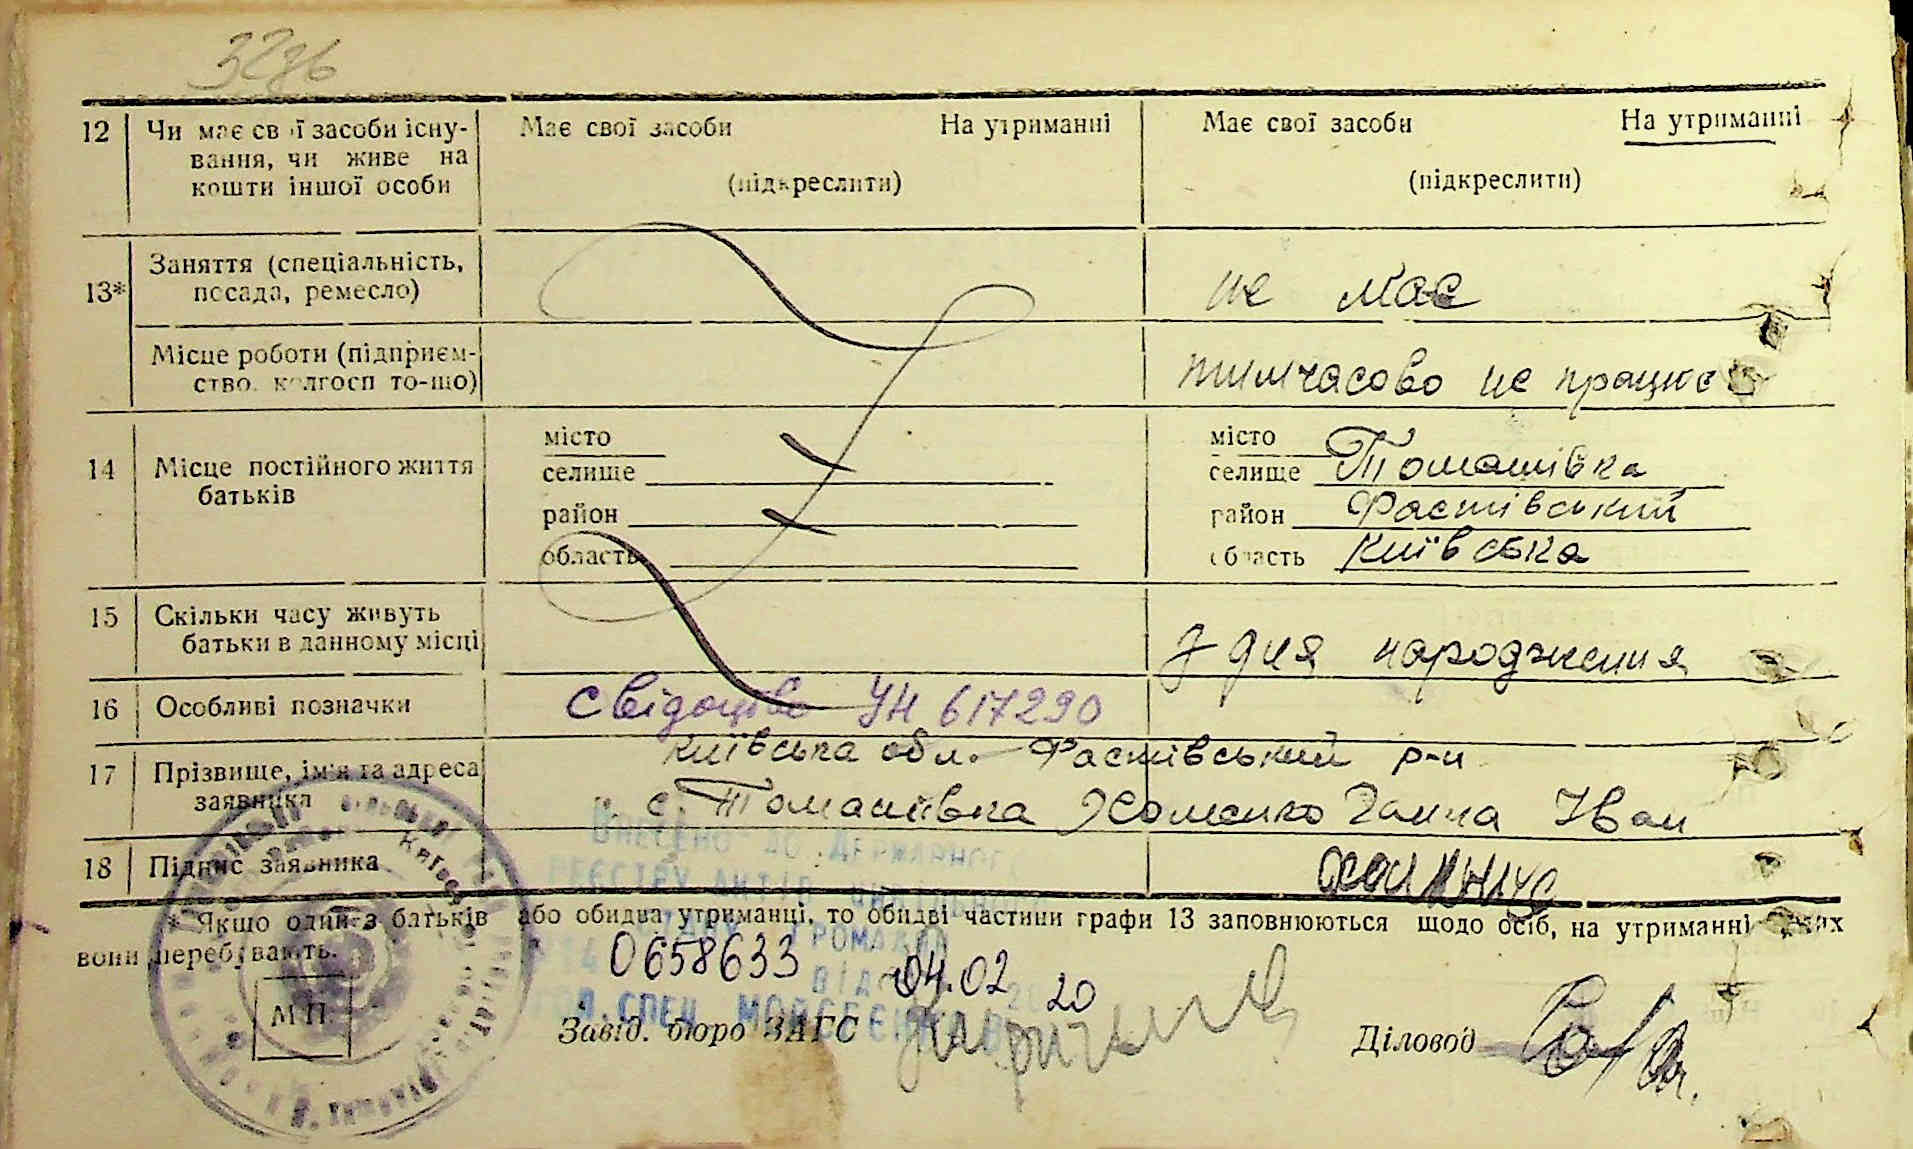 3236
12 Чи має свої засоби існу- Має свої засоби На утриманні Має свої засоби На утриманні
вання, чи живе на (підкреслити) (підкреслити)
кошти іншої особи
13* Заняття (спеціальність, не має
посада, ремесло)
Місце роботи (підприєм- тимчасово не працює
ство, колгосп то-що)
14 Місце постійного життя батьків
місто місто
селище селище Томашівка
район район Фастівський
область область Київська
15 Скільки часу живуть з дня народження
батьки в данному місці
16 Особливі позначки Свідоцтво УН 617290
17 Прізвище, ім'я та адреса Київська обл. Фастівський р-н
заявника с. Томашівка Хоменко Ганна Іван
18 Підпис заявника
* Якщо один з батьків або обидва утриманці, то обидві частини графи 13 заповнюються щодо осіб, на утриманні яких
вони перебувають.
ВНЕСЕНО ДО ДЕРЖАВНОГО
РЕЄСТРУ АКТІВ
ГРОМАДЯН
0658633 04.02 20
ГОЛ. СПЕЦ.
МП Завід. бюро ЗАГС Діловод